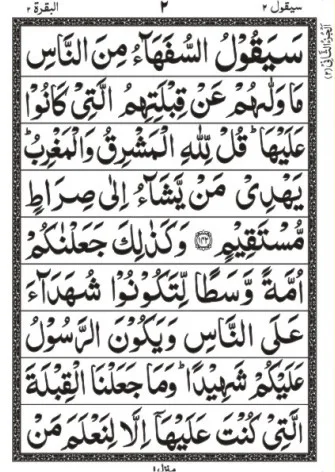 سيقول ٢
٢
البقرة ٢
سَيَقُوْلُ السُّفَهَآءُ مِنَ النَّاسِ
مَا وَلّٰىهُمْ عَنْ قِبْلَتِهِمُ الَّتِىْ كَانُوْا
عَلَيْهَا ؕ قُلْ لِّلّٰهِ الْمَشْرِقُ وَالْمَغْرِبُ ؕ
يَهْدِىْ مَنْ يَّشَآءُ اِلٰى صِرَاطٍ
مُّسْتَقِيْمٍ ﴿۱۴۲﴾ وَكَذٰلِكَ جَعَلْنٰكُمْ
اُمَّةً وَّسَطًا لِّتَكُوْنُوْا شُهَدَآءَ
عَلَى النَّاسِ وَيَكُوْنَ الرَّسُوْلُ
عَلَيْكُمْ شَهِيْدًا ؕ وَمَا جَعَلْنَا الْقِبْلَةَ
الَّتِىْ كُنْتَ عَلَيْهَآ اِلَّا لِنَعْلَمَ مَنْ